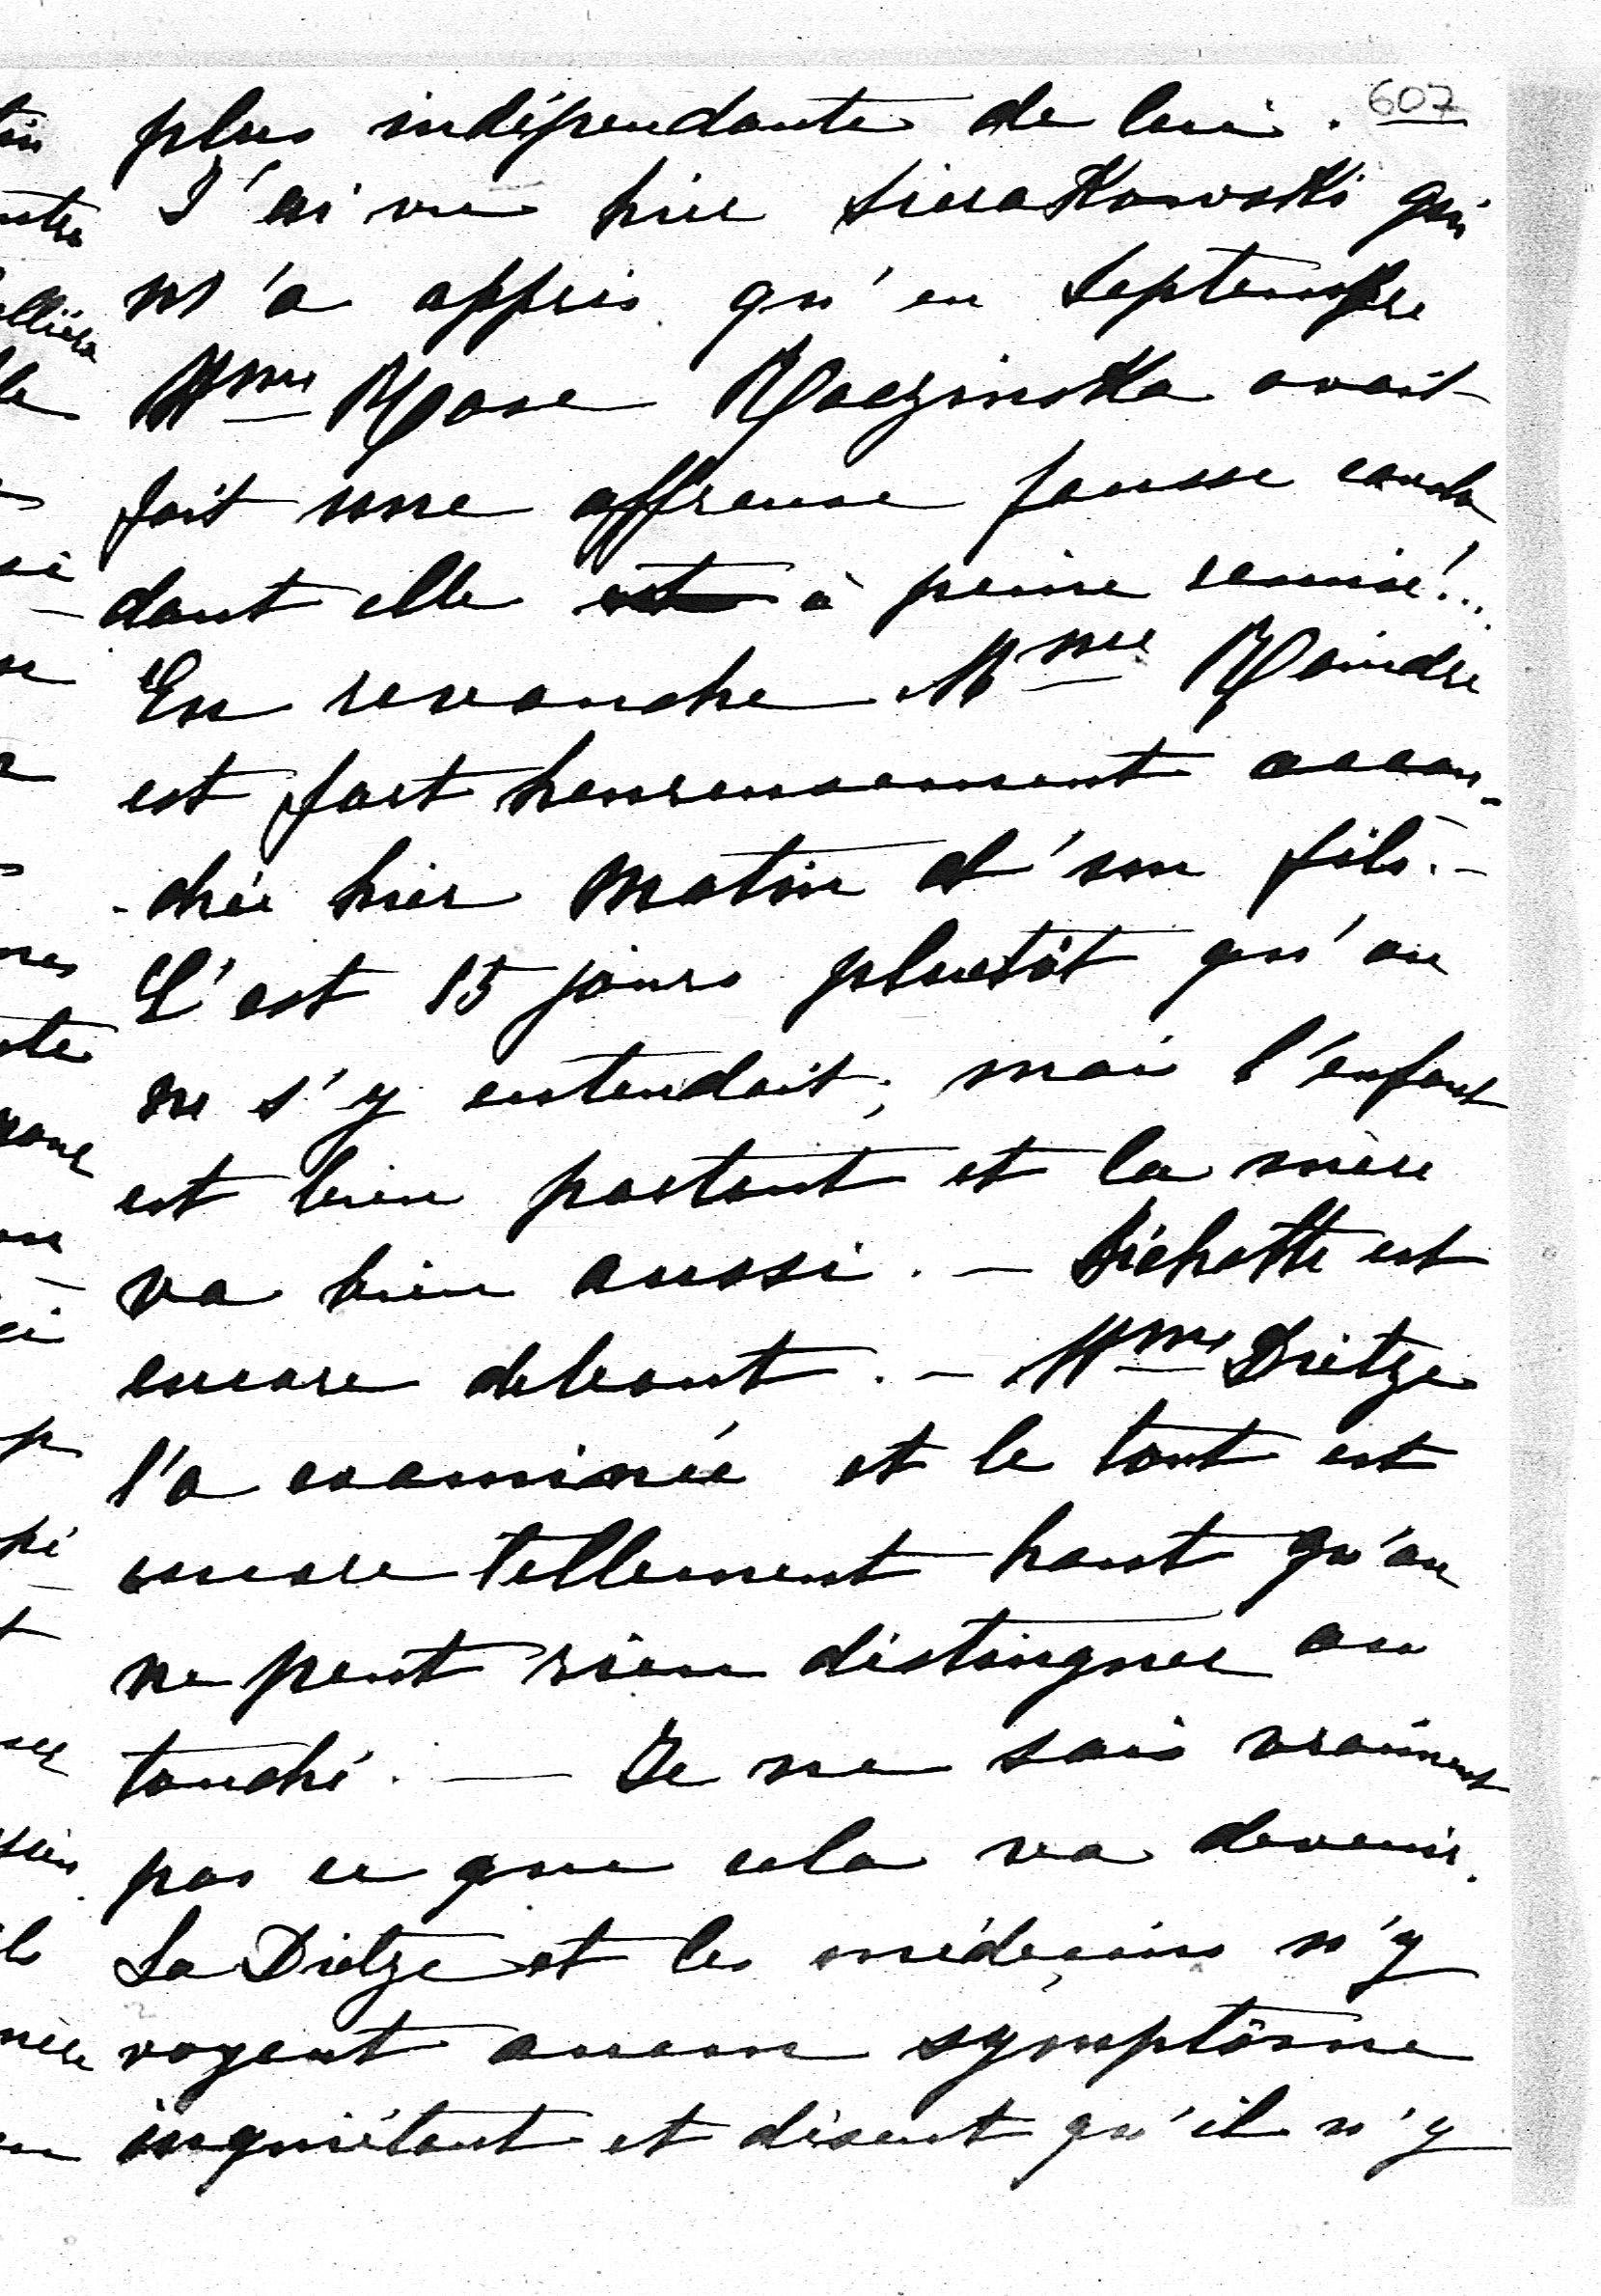 607
plus indépendante de lui.
J'ai vu hier Sierakowski qui
m'a appris qu'en Septembre
Mme Rose Raczinska avait
fait une affreuse fausse couche
dont elle est à peine remise!...
En revanche Mme Roindre
est fort heureusement accou-
-chée hier matin d'un fils. -
C'est 15 jours plutôt qu'on
ne s'y entendait; mais l'enfant
est bien portant et la mère
va bien aussi. - Bichette est
encore debout. - Mme Dietze
l'a examinée et le tout est
encore tellement haut qu'on
ne peut rien distinguer au
touché. — Je ne sais vraiment
pas ce que cela va devenir.
La Dietze et les médecins n'y
voyent aucun symptôme
inquiétant et disent qu'il n'y